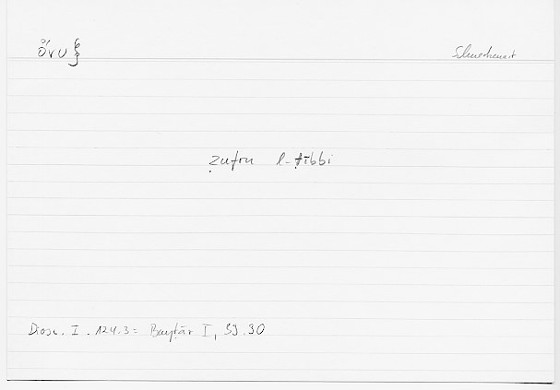 ὄνυξ Schneckenart
ẓufru l-ṭibbi
Diosc. I. 124.3 = Bayṭār I, 53.30